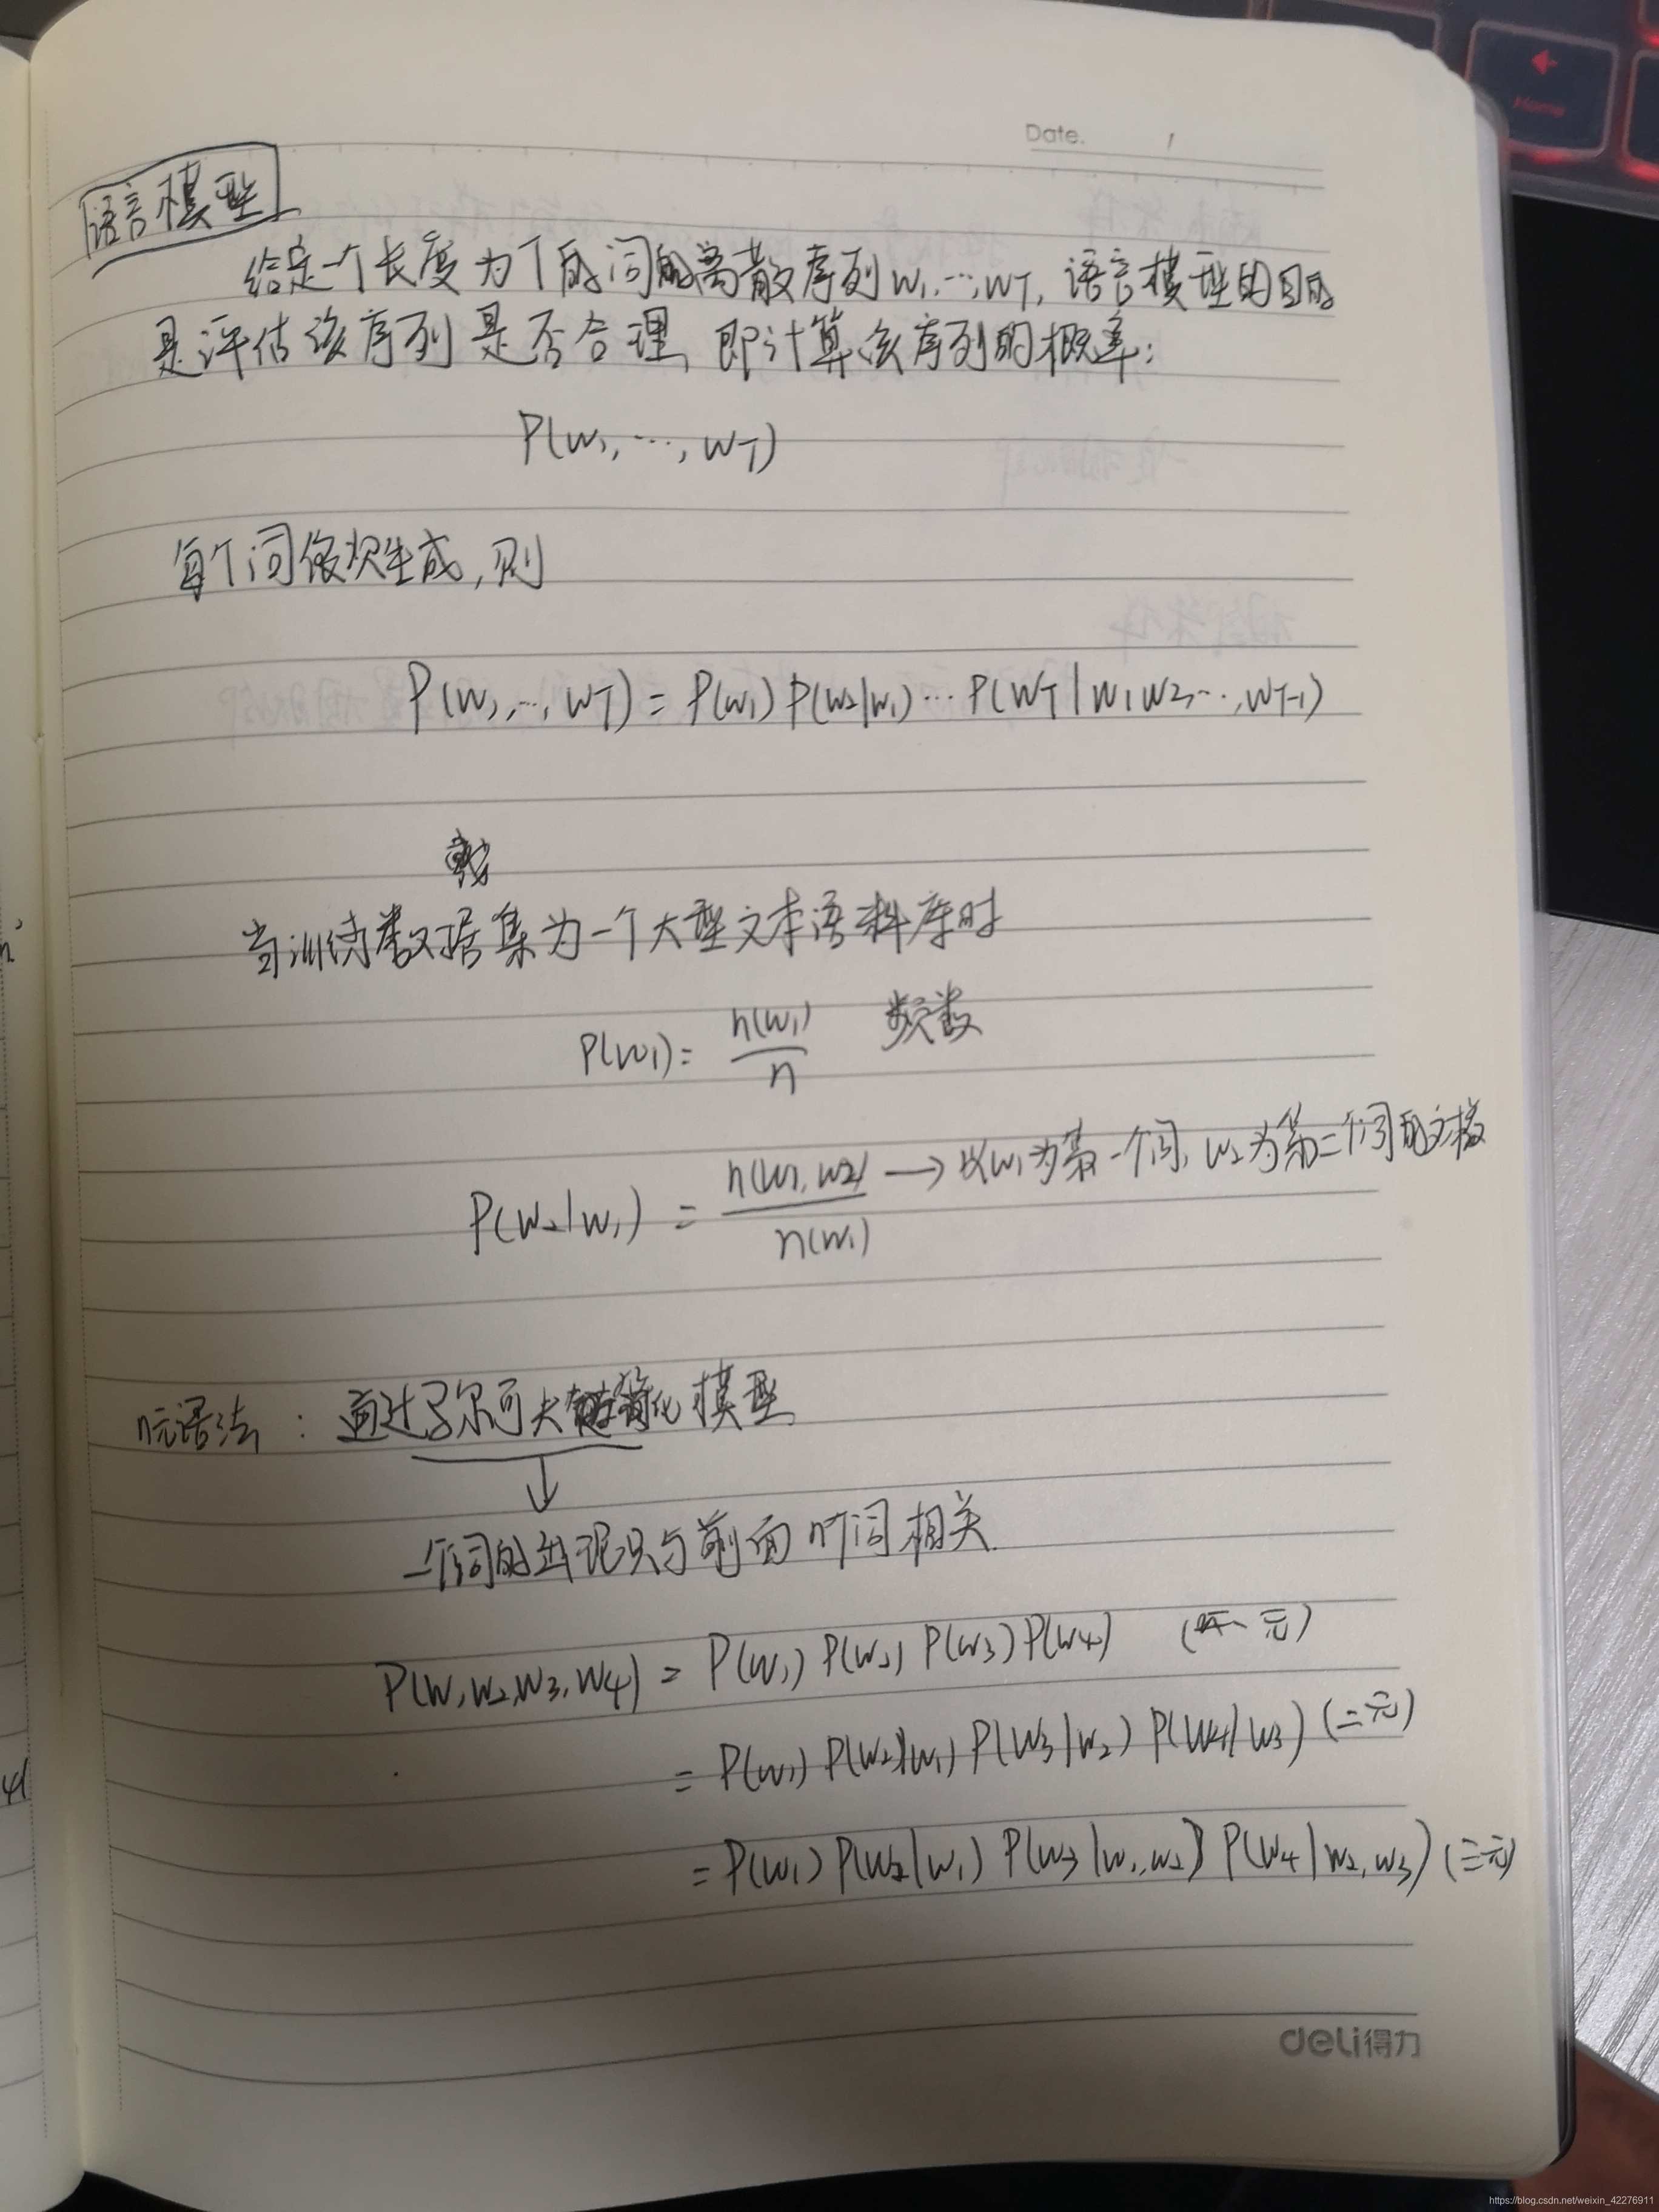 Date. /
语言模型
给定一个长度为T的词的离散序列w1,…,wT,语言模型的目的
是评估该序列是否合理,即计算该序列的概率:
P(w1,…,wT)
每个词依次生成,则
P(w1,…,wT)=P(w1)P(w2|w1)…P(wT|w1w2,…,wT-1)
当训练数据集为一个大型文本语料库时
P(w1)= n(w1)/n 频数
P(w2|w1) = n(w1,w2)/n(w1) → 以w1为第一个词,w2为第二个词的文档
n元语法:通过马尔可夫链简化模型
↓
一个词的出现只与前面n个词相关
P(w1,w2,w3,w4) = P(w1)P(w2)P(w3)P(w4) (一元)
= P(w1)P(w2|w1)P(w3|w2)P(w4|w3) (二元)
= P(w1)P(w2|w1)P(w3|w1,w2)P(w4|w2,w3) (三元)
deli得力
Home
https://blog.csdn.net/weixin_42276911